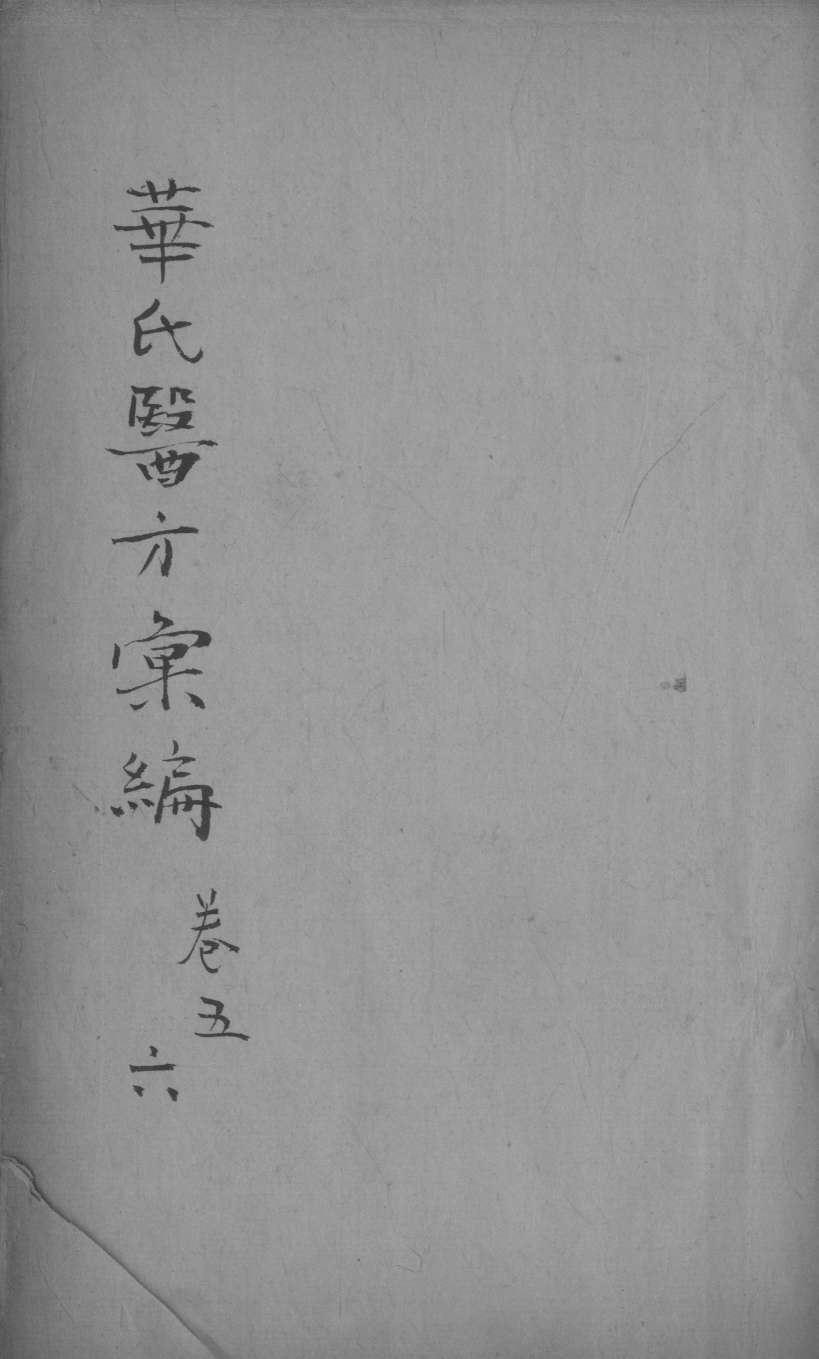 華氏醫方彙編
卷五
六